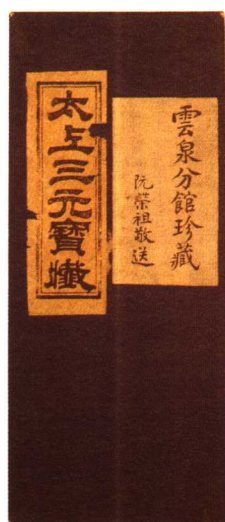 雲泉分館珍藏
阮榮祖敬送
太上三元寶懺